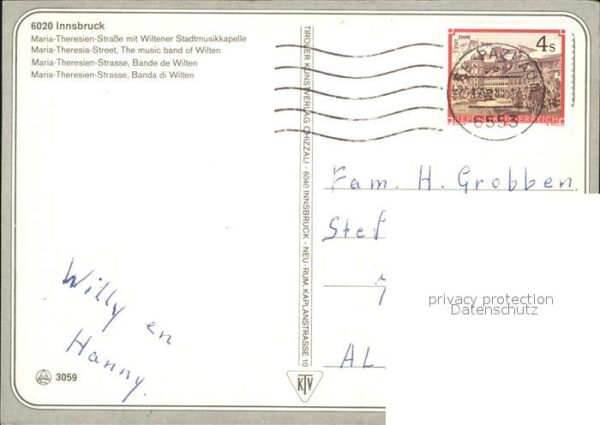 6020 Innsbruck
Maria-Theresien-Straße mit Wiltener Stadtmusikkapelle
Maria-Theresia-Street, The music band of Wilten
Maria-Theresien-Strasse, Bande de Wilten
Maria-Theresien-Strasse, Banda di Wilten
TIROLER KUNSTVERLAG CHIZZALI · 6040 INNSBRUCK - NEU-RUM, KAPLANSTRASSE 10
4s
STIFT STAMS
REPUBLIK ÖSTERREICH
6553
Fam. H. Grobben.
Stef
AL
privacy protection
Datenschutz
Willy en
Hanny.
3059
KTV